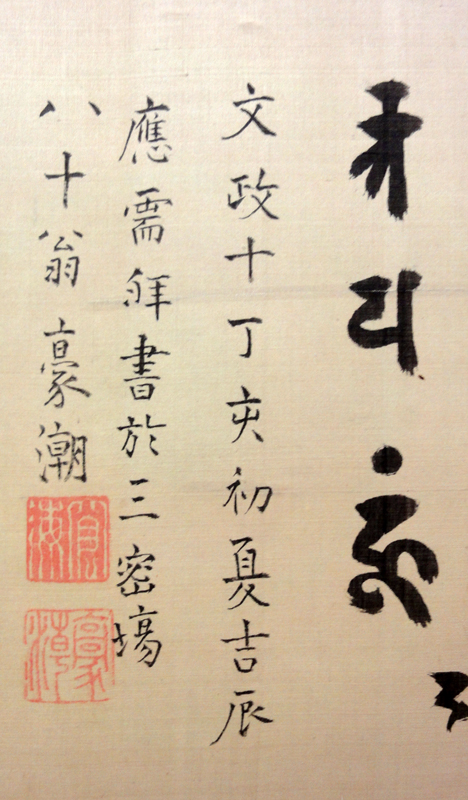 文政十丁亥初夏吉辰
應需拜書於三密場
八十翁豪潮